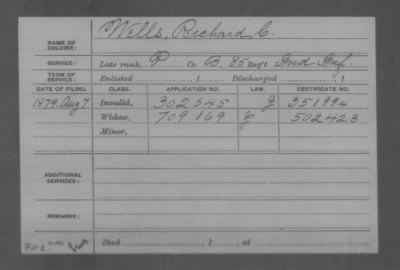 Wells, Richard C.
NAME OF SOLDIER:
SERVICE: Late rank, P Co. B, 85 Reg't Ind Inf.
TERM OF SERVICE: Enlisted , 1 Discharged , 1
DATE OF FILING. CLASS. APPLICATION NO. LAW. CERTIFICATE NO.
1879. Aug 7 Invalid, 302545 G 351994
Widow, 709169 G 502423
Minor,
ADDITIONAL SERVICES:
REMARKS:
Died , 1 , at